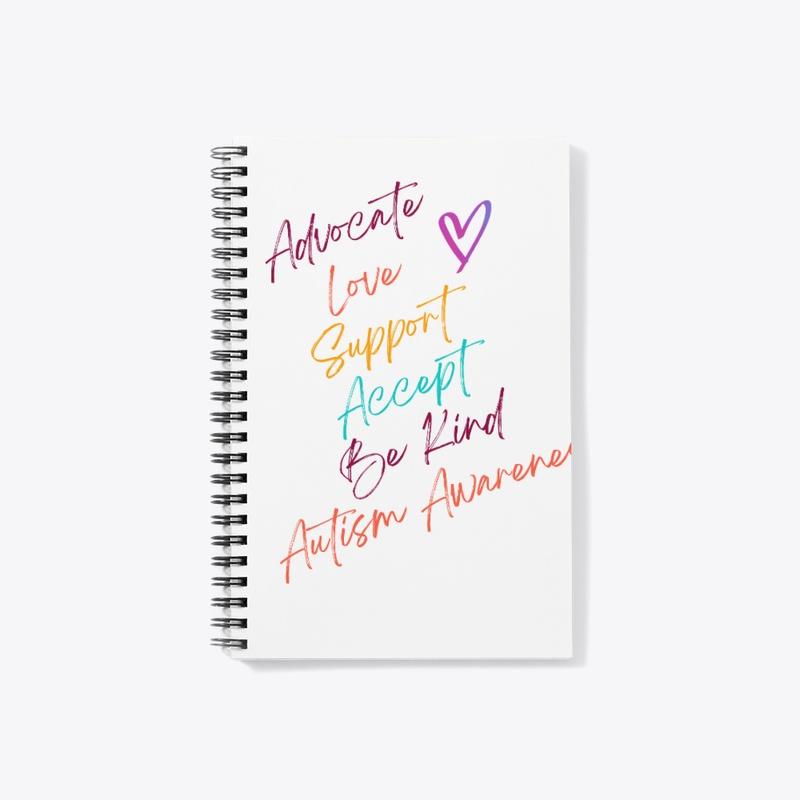 Advocate
Love
Support
Accept
Be Kind
Autism Awarene